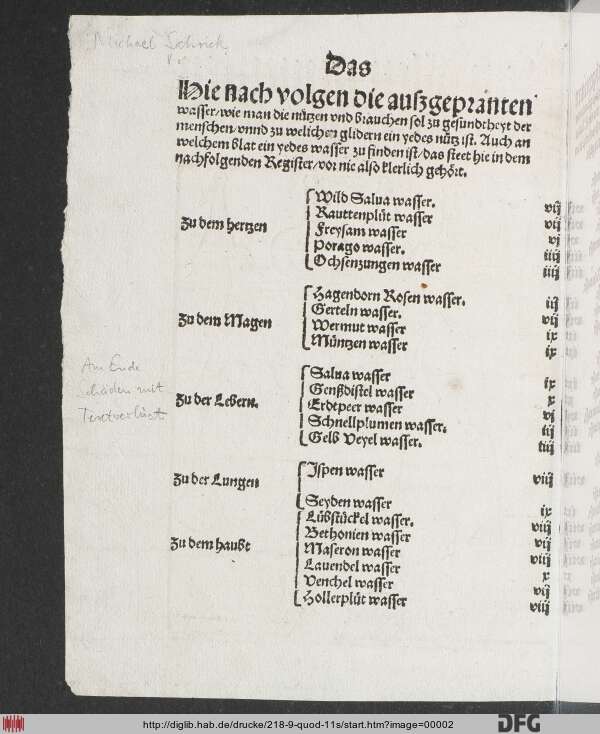 Michael Schrick
Das
Hie nach volgen die außgepranten
wasser/wie man die nützen vnd brauchen sol zu gesundtheyt der
menschen/vnnd zu welichen glidern ein yedes nütz ist. Auch an
welchem blat ein yedes wasser zu finden ist/das steet hie in dem
nachfolgenden Register/vor nie also klerlich gehört.
Zu dem hertzen
Wild Salua wasser. vij
Rauttenplüt wasser vij
Freysam wasser vj
Porago wasser. iiij
Ochsenzungen wasser iiij
Zu dem Magen
Hagendorn Rosen wasser. iij
Gerteln wasser. vij
Wermut wasser ix
Müntzen wasser ix
Am Ende
Schäden mit
Textverlust
Zu der Lebern.
Salua wasser ix
Genßdistel wasser x
Erdtpeer wasser vj
Schnellplumen wasser. iij
Gelb Veyel wasser. iiij
Zu der Lungen
Ispen wasser viij
Zu dem haubt
Seyden wasser ix
Lübstückel wasser. viij
Bethonien wasser vij
Maseron wasser viij
Lauendel wasser x
Venchel wasser vij
Hollerplüt wasser viij
http://diglib.hab.de/drucke/218-9-quod-11s/start.htm?image=00002
DFG